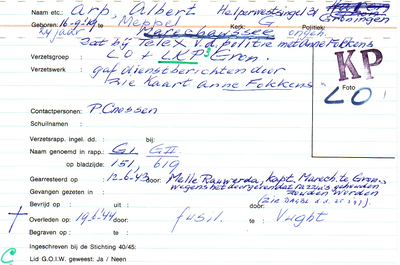 Naam etc.: Arp, Albert Helperwestsingel 31 Haren Groningen
Geboren: 16-9-19 te: Meppel Kerk: G Politiek:
24 jaar Marechaussee ongeh.
Zat bij Telex v.d. politie met Anne Fokkens
Verzetsgroep : LO + LKP Gron.
Verzetswerk : gaf dienstberichten door
Zie Kaart Anne Fokkens
KP
Foto
LO
Contactpersonen: P. Cnossen
Schuilnaam :
Verzetsrapp. ingel. dd. : bij:
Naam genoemd in rapp.: G I G II
op bladzijde: 151, 619
Gearresteerd op : 12.6.'43 door: Melle Rauwerda, Kapt. Marech. te Gron.
wegens het doorgeven dat razzia's gehouden
Gevangen gezeten in : zouden worden
Bevrijd op : uit: door:
Overleden op : 19.6.'44 door: fusil. te: Vught
Begraven op : te:
Ingeschreven bij de Stichting 40/45:
C Lid G.O.I.W. geweest: Ja / Neen